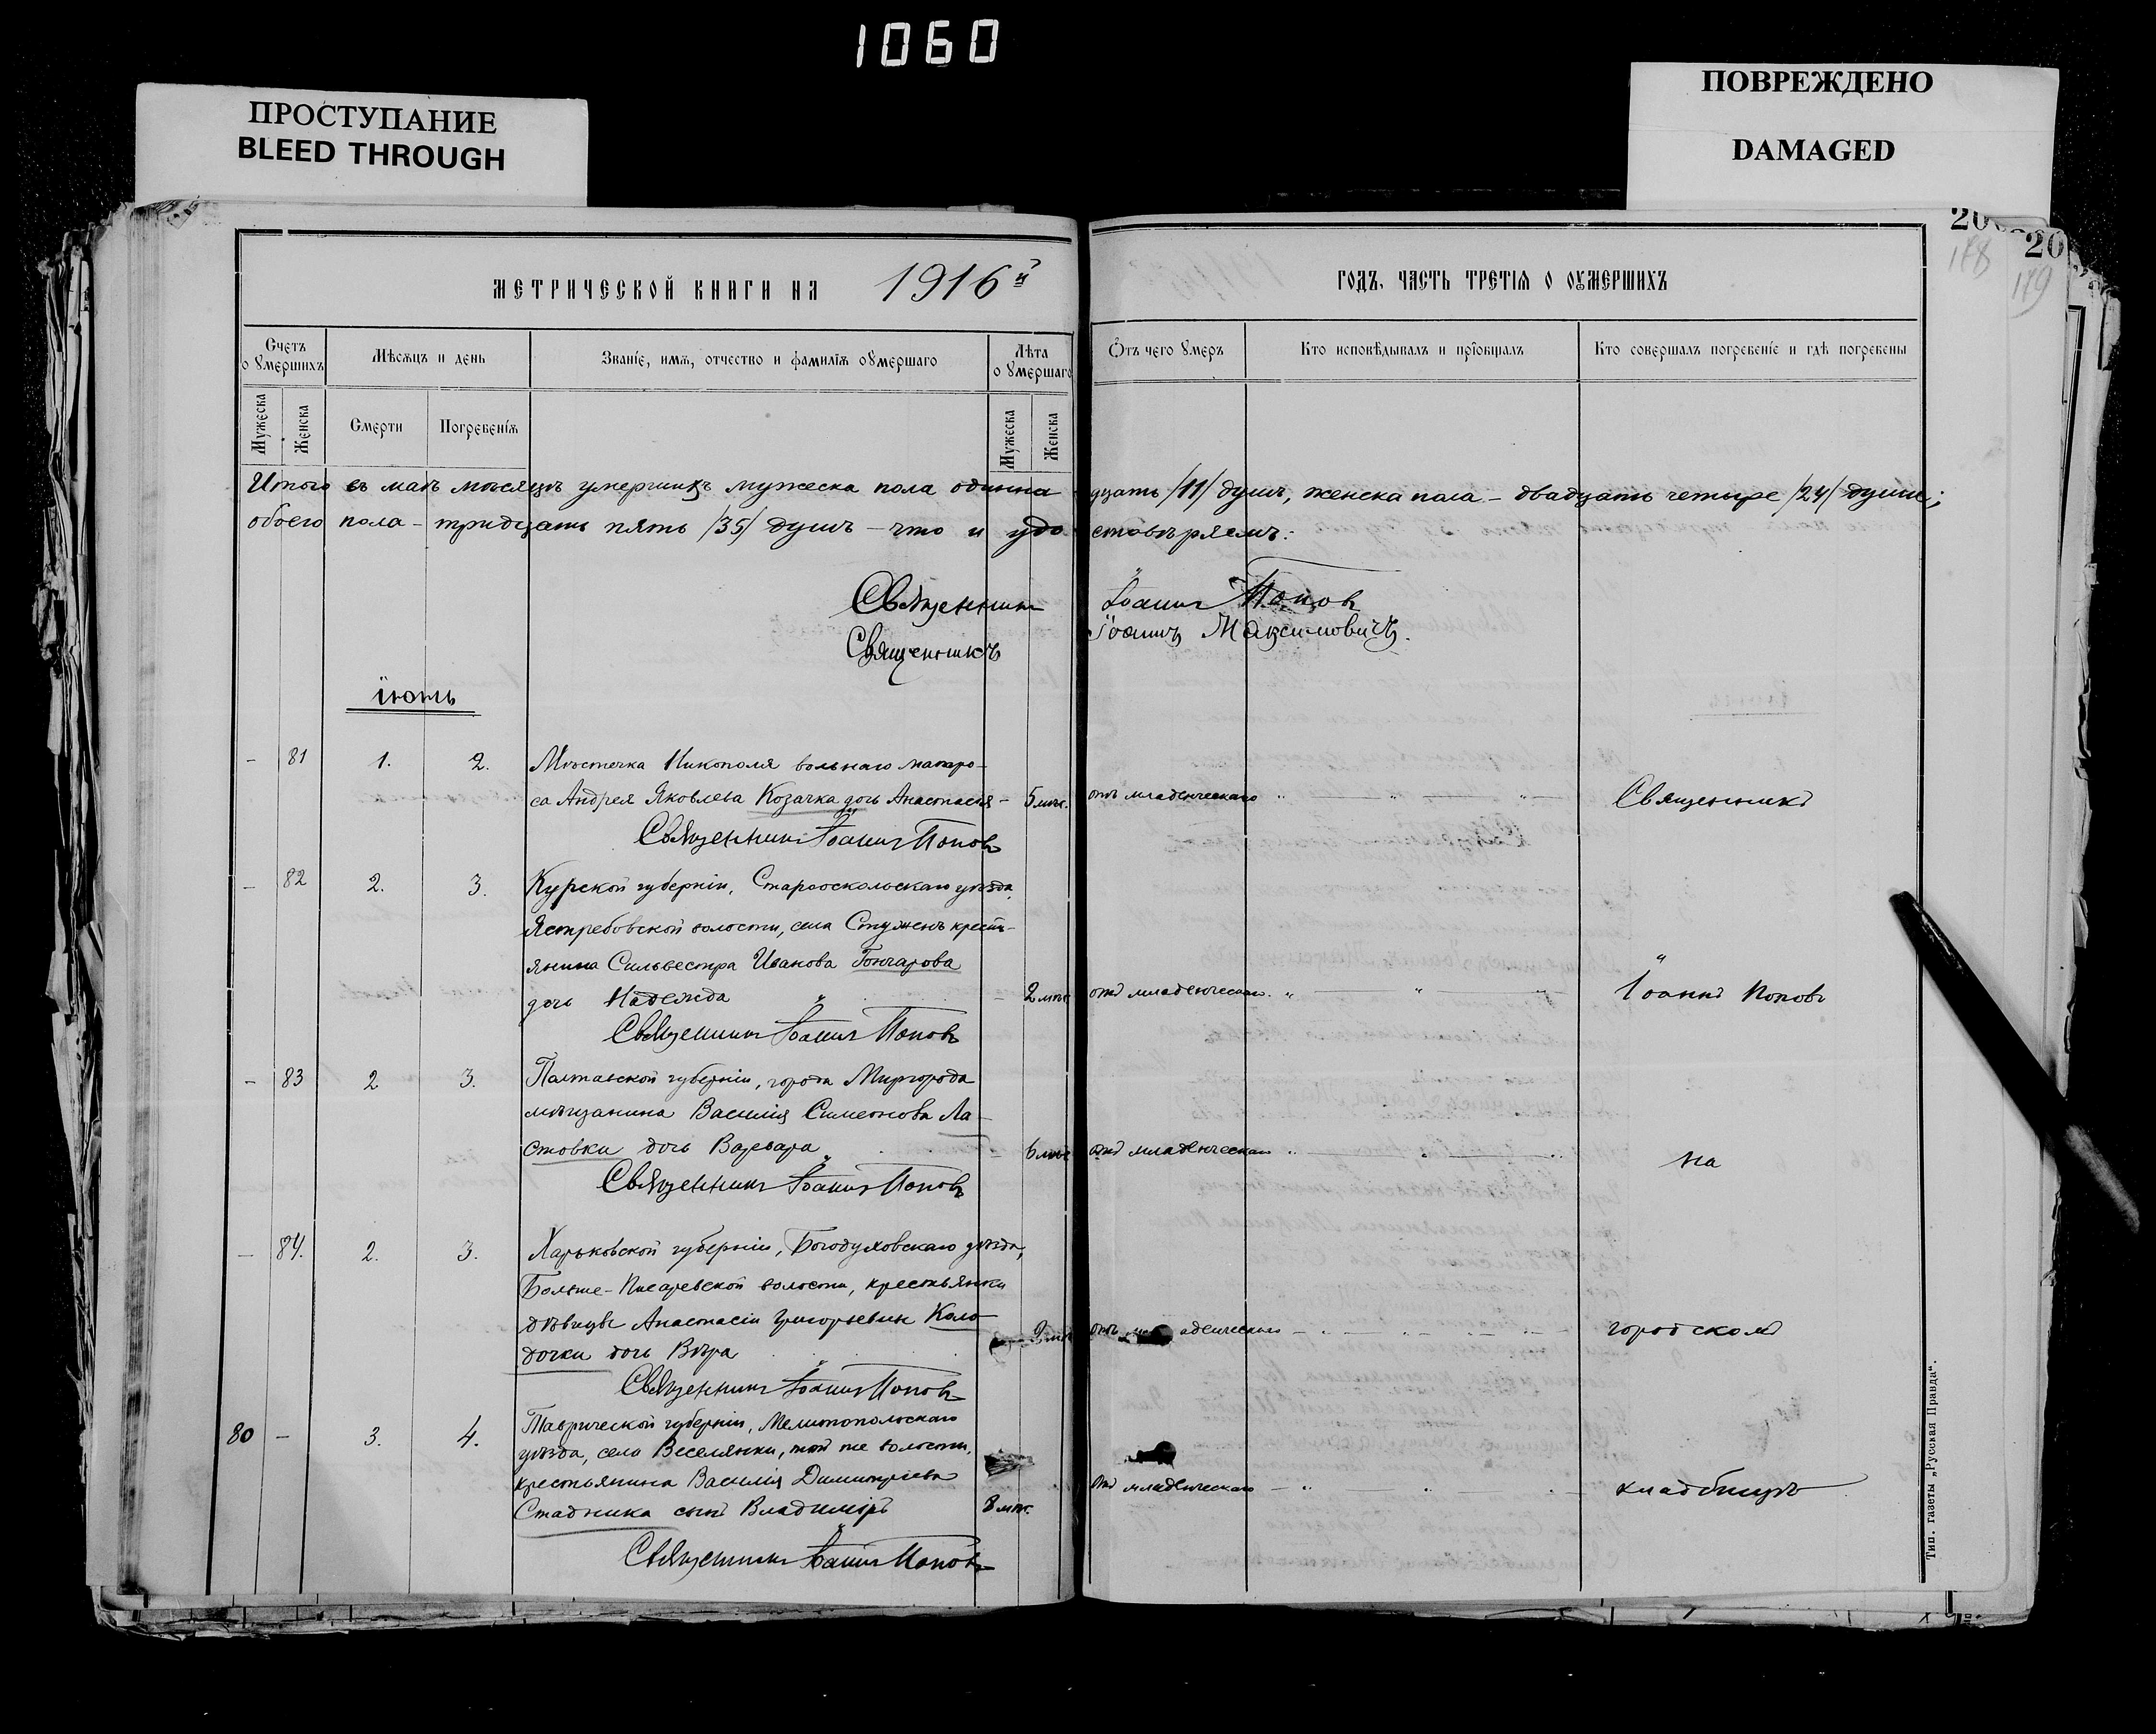 1060
ПРОСТУПАНИЕ
BLEED THROUGH
ПОВРЕЖДЕНО
DAMAGED
20
20
178
179
МЕТРИЧЕСКОЙ КНИГИ НА 1916й
ГОДЪ, ЧАСТЬ ТРЕТІѦ О ОУМЕРШИХЪ
Счетъ оумершихъ
Мѣсѧцъ и день
Званіе, имѧ, отчество и фамиліѧ оумершаго
Лѣта оумершаго
Отъ чего умеръ
Кто исповѣдывалъ и пріобщалъ
Кто совершалъ погребеніе и гдѣ погребены
Мужеска
Женска
Смерти
Погребеніѧ
Мужеска
Женска
Итого въ маѣ мѣсяцѣ умершихъ мужеска пола одинна дцать /11/ душъ, женска пола – двадцать четыре /24/ души;
обоего пола – тридцать пять /35/ душъ – что и удо стовѣряемъ:
Священникъ Іоаннъ Поповъ
Священникъ Іоаннъ Максимовичъ.
іюнь
– 81 1. 2. Мѣстечка Никополя вольнаго матро-
са Андрея Яковлева Козачка дочь Анастасія – 5 мѣс. отъ младенческаго " " " Священникъ
Священникъ Іоаннъ Поповъ
– 82 2. 3. Курской губерніи, Старооскольскаго уѣзда,
Ястребовской волости, села Стужень крестъ-
янина Сильвестра Иванова Гончарова
дочь Надежда – 2 мѣс. отъ младенческаго " " " Іоаннъ Поповъ
Священникъ Іоаннъ Поповъ
– 83 2 3. Полтавской губерніи, города Миргорода
мѣщанина Василія Симеонова Ла-
стовки дочь Варвара – 6 мѣс. отъ младенческаго " " " на
Священникъ Іоаннъ Поповъ
– 84. 2. 3. Харьковской губерніи, Богодуховскаго уѣзда,
Больше-Писаревской волости, крестьянки
дѣвицы Анастасіи Григорьевны Коло
дочки дочь Вѣра отъ городскомъ
Священникъ Іоаннъ Поповъ
80 – 3. 4. Таврической губерніи, Мелитопольскаго
уѣзда, села Веселянки, той же волости,
крестьянина Василія Димитріева
Стадника сынъ Владиміръ 8 мѣс. отъ младенческаго – " – " – кладбищѣ
Священникъ Іоаннъ Поповъ
Тип. газеты „Русская Правда“.